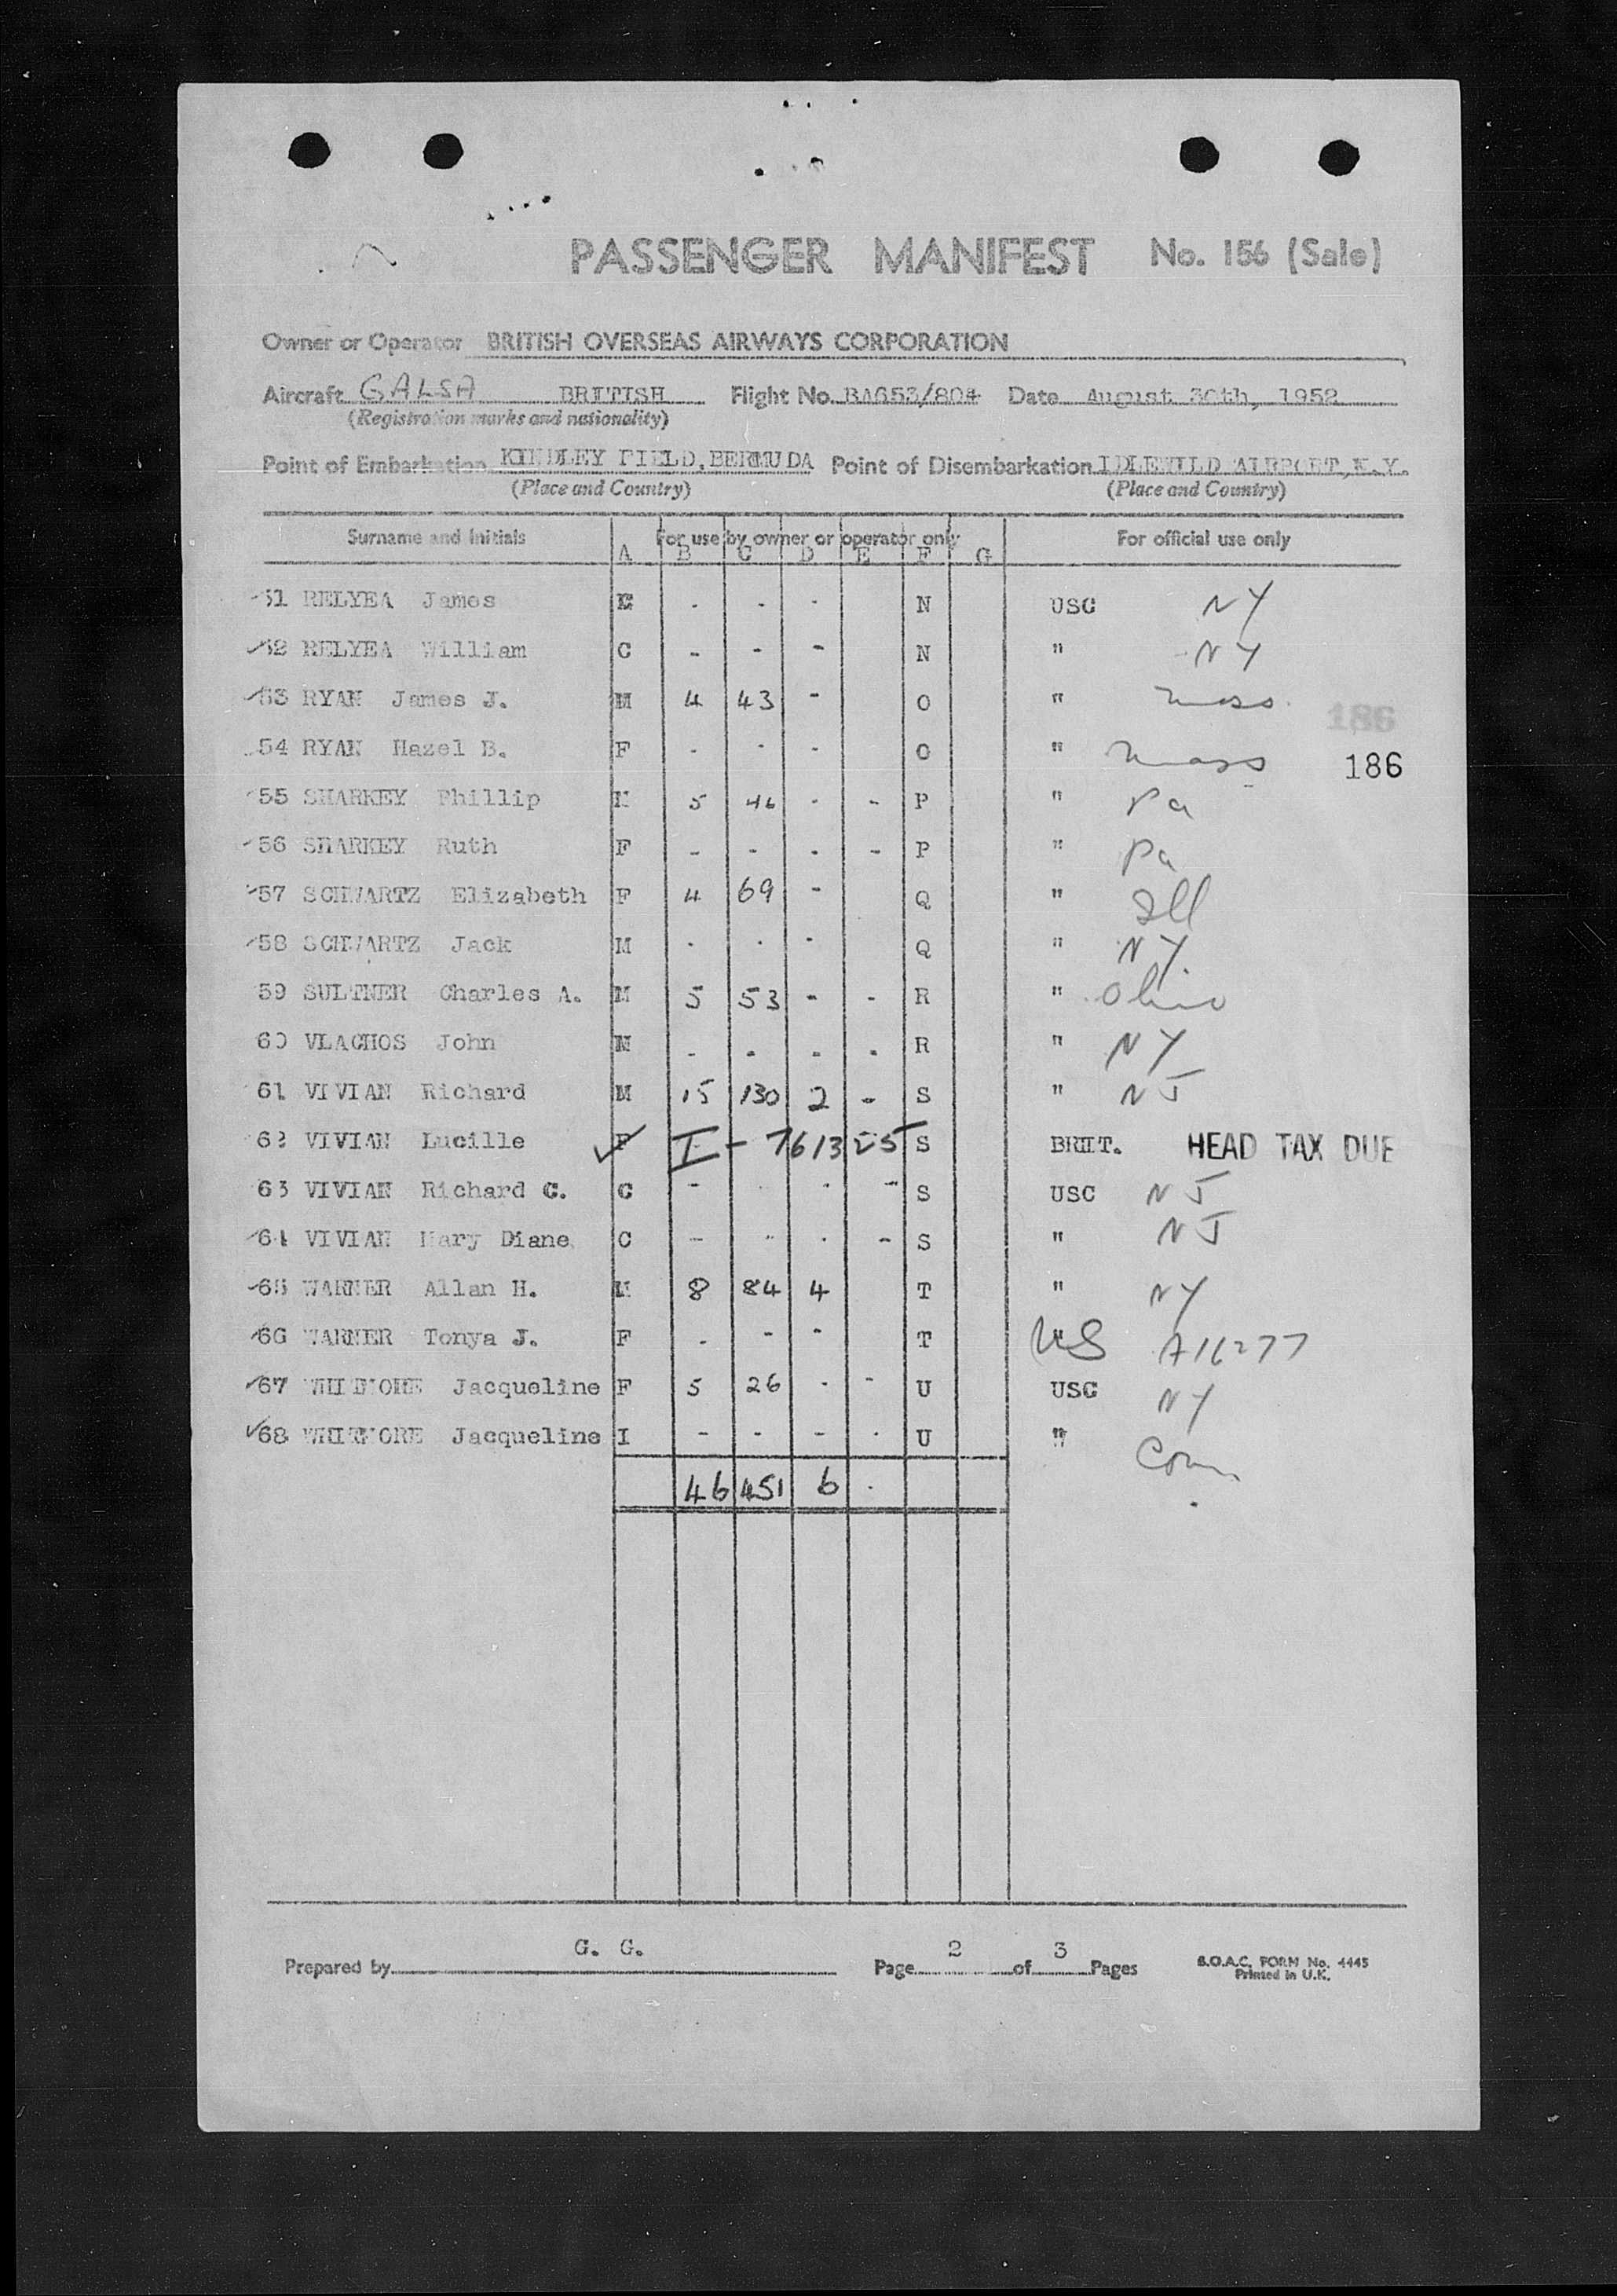 PASSENGER MANIFEST No. 156 (Sale)
Owner or Operator BRITISH OVERSEAS AIRWAYS CORPORATION
Aircraft GALSA BRITISH Flight No. BA653/804 Date August 30th, 1952
(Registration marks and nationality)
Point of Embarkation KINDLEY FIELD, BERMUDA Point of Disembarkation IDLEWILD AIRPORT, N.Y.
(Place and Country) (Place and Country)
Surname and Initials For use by owner or operator only For official use only
A B C D E F G
51 RELYEA James - - - N USC NY
52 RELYEA William C - - - N " NY
53 RYAN James J. M 4 43 - O " Mass.
186
54 RYAN Hazel B. F - - - O " Mass 186
55 SHARKEY Phillip M 5 46 - - P " Pa
56 SHARKEY Ruth F - - - - P " Pa
57 SCHWARTZ Elizabeth F 4 69 - Q " Ill
58 SCHWARTZ Jack M - - - Q " NY.
59 SULTNER Charles A. M 5 53 - - R " Ohio
60 VLACHOS John M - - - - R " NY
61 VIVIAN Richard M 15 130 2 - S " NJ
62 VIVIAN Lucille F I - 7613255 S BRIT. HEAD TAX DUE
63 VIVIAN Richard C. C - - - - S USC NJ
64 VIVIAN Mary Diane C - - - - S " NJ
65 WARNER Allan H. M 8 84 4 T " NY
66 WARNER Tonya J. F - - - T US A16277
67 WHITMORE Jacqueline F 5 26 - - U USC NY
68 WHITMORE Jacqueline I - - - - U " Conn
46 451 6 -
Prepared by G. G. Page 2 of 3 Pages B.O.A.C. FORM No. 4445
Printed in U.K.